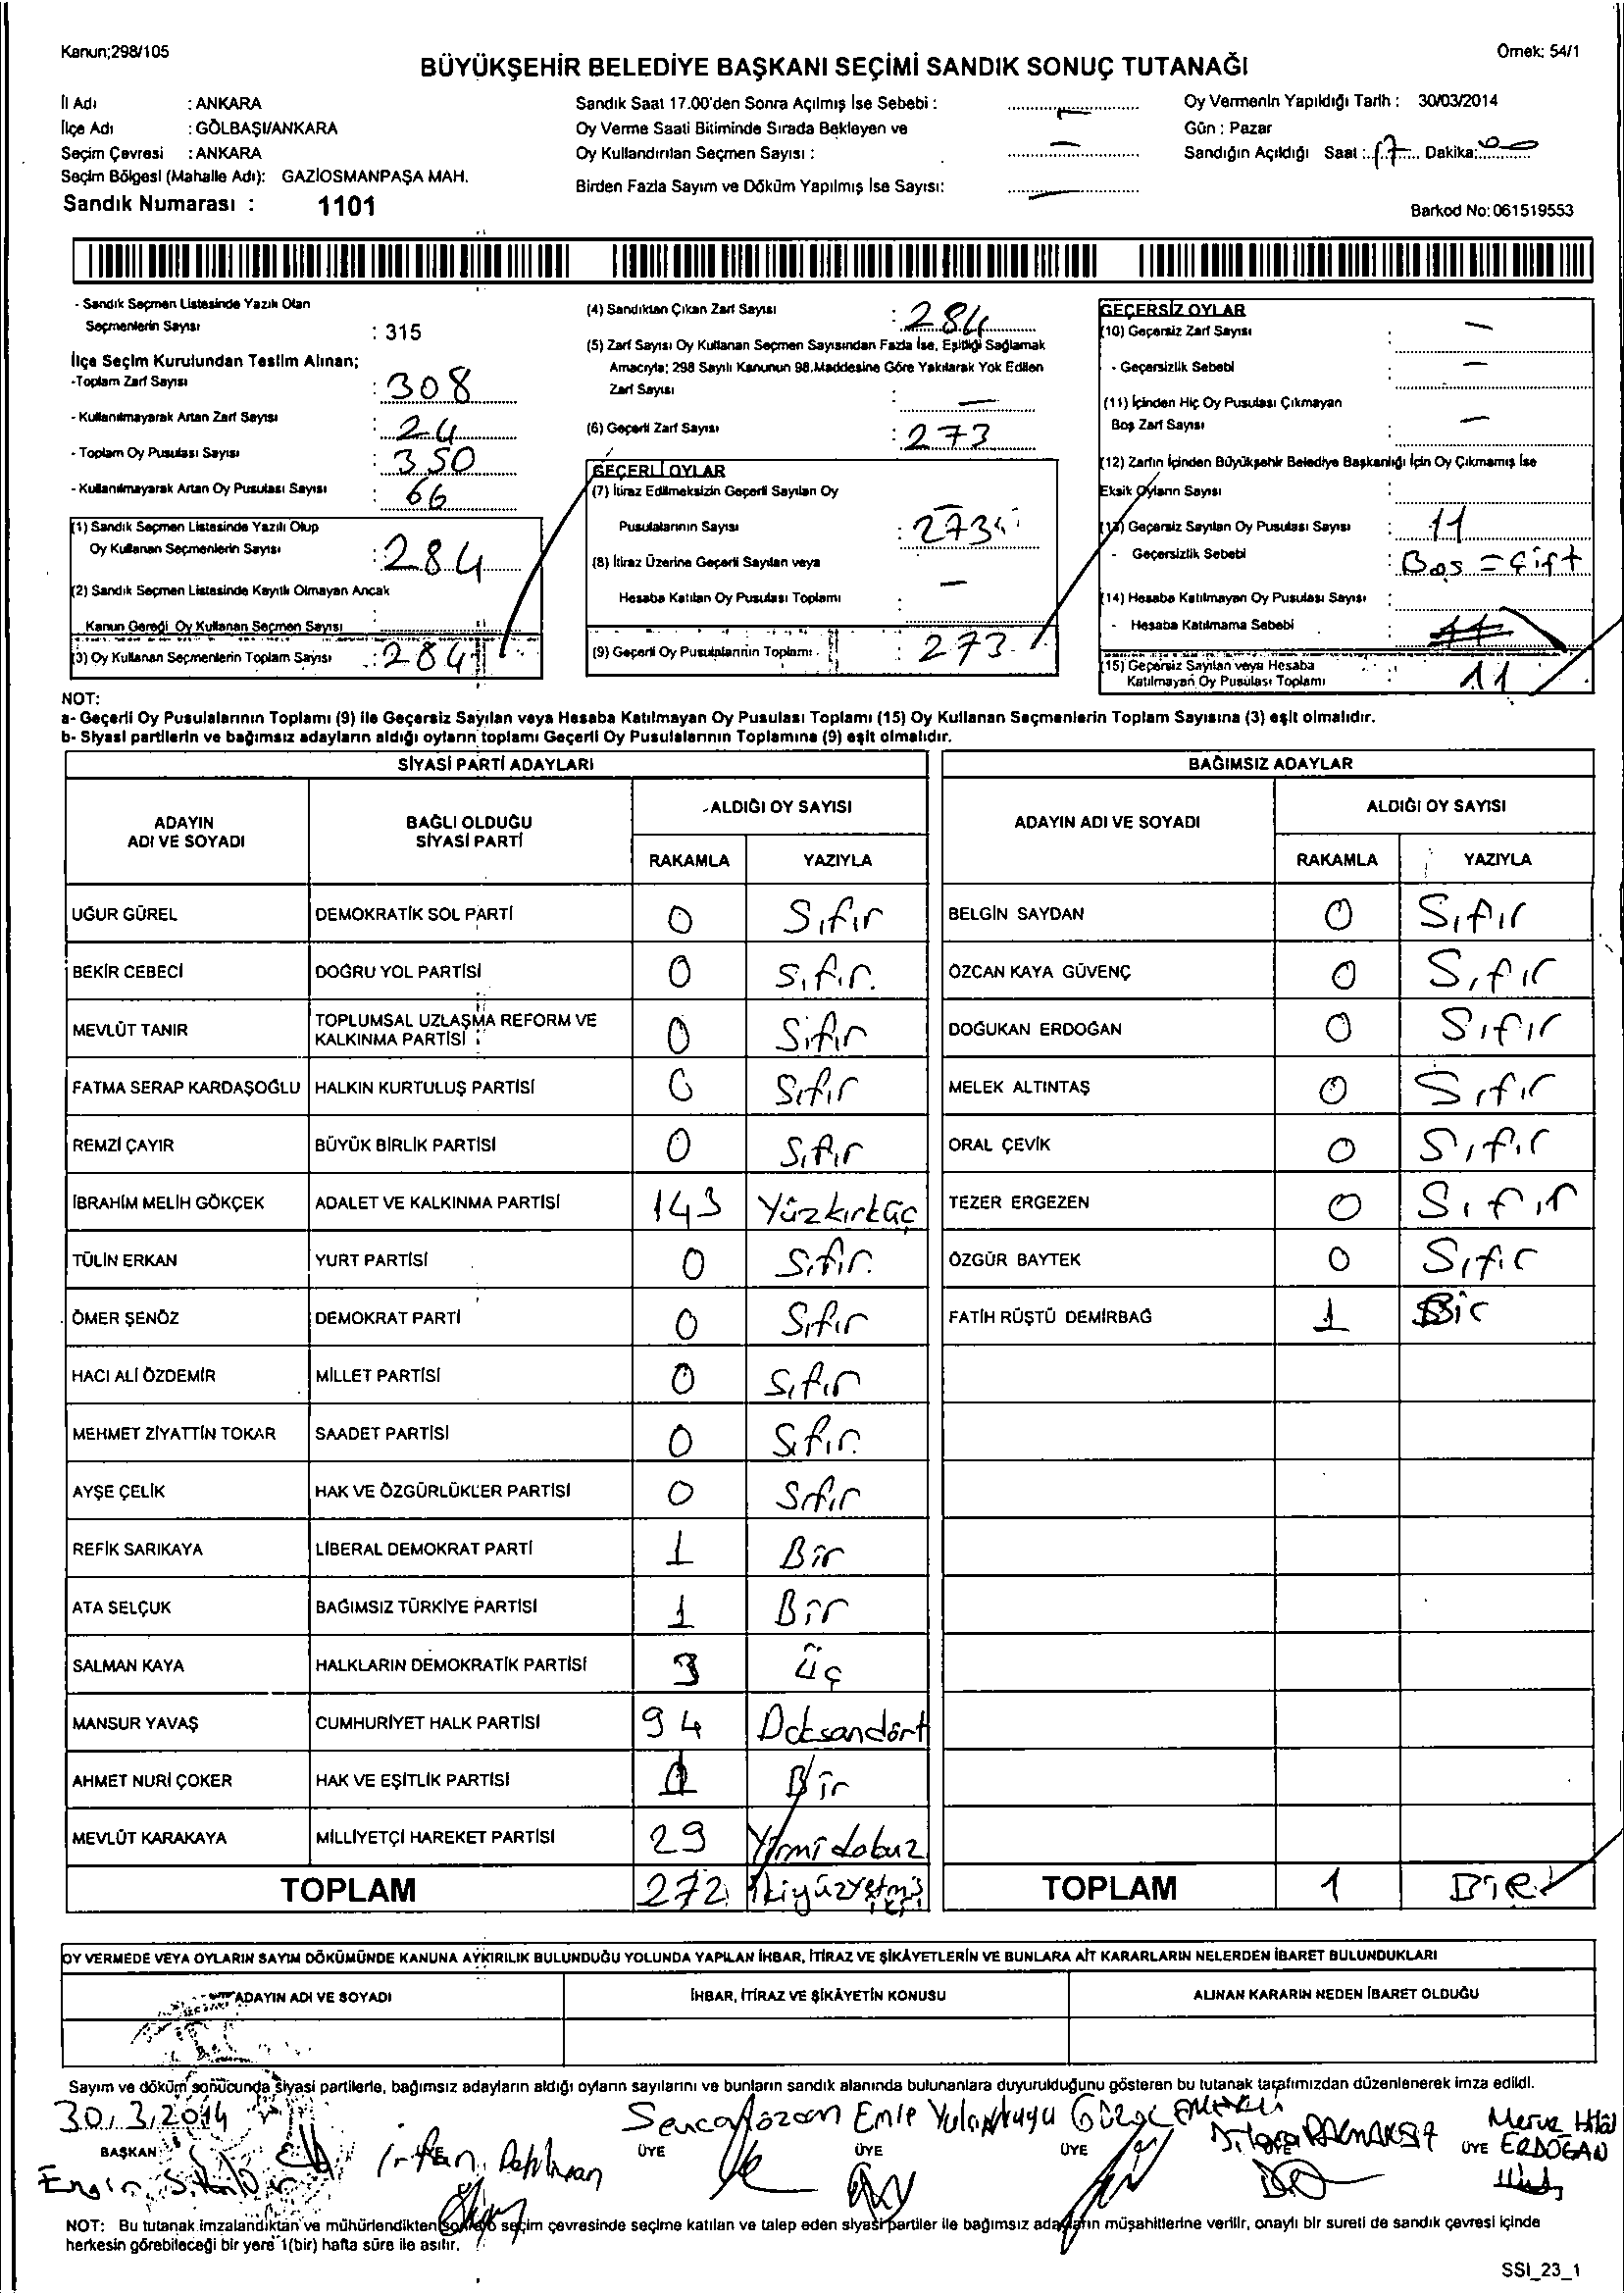 Kanun;298/105
Örnek: 54/1
BÜYÜKŞEHİR BELEDİYE BAŞKANI SEÇİMİ SANDIK SONUÇ TUTANAĞI
İl Adı : ANKARA
İlçe Adı : GÖLBAŞI/ANKARA
Seçim Çevresi : ANKARA
Seçim Bölgesi (Mahalle Adı): GAZİOSMANPAŞA MAH.
Sandık Numarası : 1101
Sandık Saat 17.00'den Sonra Açılmış İse Sebebi : —
Oy Verme Saati Bitiminde Sırada Bekleyen ve
Oy Kullandırılan Seçmen Sayısı : —
Birden Fazla Sayım ve Döküm Yapılmış İse Sayısı: —
Oy Vermenin Yapıldığı Tarih : 30/03/2014
Gün : Pazar
Sandığın Açıldığı Saat : 17 Dakika: 00
Barkod No: 061519553
- Sandık Seçmen Listesinde Yazılı Olan
Seçmenlerin Sayısı : 315
İlçe Seçim Kurulundan Teslim Alınan;
-Toplam Zarf Sayısı : 308
- Kullanılmayarak Artan Zarf Sayısı : 24
- Toplam Oy Pusulası Sayısı : 350
- Kullanılmayarak Artan Oy Pusulası Sayısı : 66
(1) Sandık Seçmen Listesinde Yazılı Olup
Oy Kullanan Seçmenlerin Sayısı : 284
(2) Sandık Seçmen Listesinde Kayıtlı Olmayan Ancak
Kanun Gereği Oy Kullanan Seçmen Sayısı :
(3) Oy Kullanan Seçmenlerin Toplam Sayısı : 284
(4) Sandıktan Çıkan Zarf Sayısı : 284
(5) Zarf Sayısı Oy Kullanan Seçmen Sayısından Fazla İse, Eşitliği Sağlamak
Amacıyla; 298 Sayılı Kanunun 98.Maddesine Göre Yakılarak Yok Edilen
Zarf Sayısı : —
(6) Geçerli Zarf Sayısı : 273
GEÇERLİ OYLAR
(7) İtiraz Edilmeksizin Geçerli Sayılan Oy
Pusulalarının Sayısı : 273
(8) İtiraz Üzerine Geçerli Sayılan veya
Hesaba Katılan Oy Pusulası Toplamı : —
(9) Geçerli Oy Pusulalarının Toplamı : 273
GEÇERSİZ OYLAR
(10) Geçersiz Zarf Sayısı : —
- Geçersizlik Sebebi : —
(11) İçinden Hiç Oy Pusulası Çıkmayan
Boş Zarf Sayısı : —
(12) Zarfın İçinden Büyükşehir Belediye Başkanlığı İçin Oy Çıkmamış İse
Eksik Oyların Sayısı :
(13) Geçersiz Sayılan Oy Pusulası Sayısı : 11
- Geçersizlik Sebebi : Boş = Çift
(14) Hesaba Katılmayan Oy Pusulası Sayısı :
- Hesaba Katılmama Sebebi : 11
(15) Geçersiz Sayılan veya Hesaba
Katılmayan Oy Pusulası Toplamı : 11
NOT:
a- Geçerli Oy Pusulalarının Toplamı (9) ile Geçersiz Sayılan veya Hesaba Katılmayan Oy Pusulası Toplamı (15) Oy Kullanan Seçmenlerin Toplam Sayısına (3) eşit olmalıdır.
b- Siyasi partilerin ve bağımsız adayların aldığı oyların toplamı Geçerli Oy Pusulalarının Toplamına (9) eşit olmalıdır.
SİYASİ PARTİ ADAYLARI
ADAYIN ADI VE SOYADI
BAĞLI OLDUĞU SİYASİ PARTİ
ALDIĞI OY SAYISI
RAKAMLA YAZIYLA
UĞUR GÜREL DEMOKRATİK SOL PARTİ 0 Sıfır
BEKİR CEBECİ DOĞRU YOL PARTİSİ 0 Sıfır.
MEVLÜT TANIR TOPLUMSAL UZLAŞMA REFORM VE KALKINMA PARTİSİ 0 Sıfır
FATMA SERAP KARDAŞOĞLU HALKIN KURTULUŞ PARTİSİ 0 Sıfır
REMZİ ÇAYIR BÜYÜK BİRLİK PARTİSİ 0 Sıfır
İBRAHİM MELİH GÖKÇEK ADALET VE KALKINMA PARTİSİ 143 Yüzkırküç
TÜLİN ERKAN YURT PARTİSİ 0 Sıfır.
ÖMER ŞENÖZ DEMOKRAT PARTİ 0 Sıfır
HACI ALİ ÖZDEMİR MİLLET PARTİSİ 0 Sıfır
MEHMET ZİYATTİN TOKAR SAADET PARTİSİ 0 Sıfır.
AYŞE ÇELİK HAK VE ÖZGÜRLÜKLER PARTİSİ 0 Sıfır
REFİK SARIKAYA LİBERAL DEMOKRAT PARTİ 1 Bir
ATA SELÇUK BAĞIMSIZ TÜRKİYE PARTİSİ 1 Bir
SALMAN KAYA HALKLARIN DEMOKRATİK PARTİSİ 3 üç
MANSUR YAVAŞ CUMHURİYET HALK PARTİSİ 94 Doksandört
AHMET NURİ ÇOKER HAK VE EŞİTLİK PARTİSİ 1 Bir
MEVLÜT KARAKAYA MİLLİYETÇİ HAREKET PARTİSİ 29 Yirmidokuz
TOPLAM 272 ikiyüzyetmiş iki
BAĞIMSIZ ADAYLAR
ADAYIN ADI VE SOYADI
ALDIĞI OY SAYISI
RAKAMLA YAZIYLA
BELGİN SAYDAN 0 Sıfır
ÖZCAN KAYA GÜVENÇ 0 Sıfır
DOĞUKAN ERDOĞAN 0 Sıfır
MELEK ALTINTAŞ 0 Sıfır
ORAL ÇEVİK 0 Sıfır
TEZER ERGEZEN 0 Sıfır
ÖZGÜR BAYTEK 0 Sıfır
FATİH RÜŞTÜ DEMİRBAĞ 1 Bir
TOPLAM 1 BİR
OY VERMEDE VEYA OYLARIN SAYIM DÖKÜMÜNDE KANUNA AYKIRILIK BULUNDUĞU YOLUNDA YAPILAN İHBAR, İTİRAZ VE ŞİKÂYETLERİN VE BUNLARA AİT KARARLARIN NELERDEN İBARET BULUNDUKLARI
ADAYIN ADI VE SOYADI
İHBAR, İTİRAZ VE ŞİKÂYETİN KONUSU
ALINAN KARARIN NEDEN İBARET OLDUĞU
Sayım ve döküm sonucunda siyasi partilerle, bağımsız adayların aldığı oyların sayılarını ve bunların sandık alanında bulunanlara duyurulduğunu gösteren bu tutanak tarafımızdan düzenlenerek imza edildi.
30.3.2014
BAŞKAN
Engin
İrfan
ÜYE
ÜYE Emre
ÜYE
Dilara
ÜYE Merve Hilâl ERDOĞAN
NOT: Bu tutanak imzalandıktan ve mühürlendikten sonra o seçim çevresinde seçime katılan ve talep eden siyasi partiler ile bağımsız adayların müşahitlerine verilir, onaylı bir sureti de sandık çevresi içinde
herkesin görebileceği bir yere 1(bir) hafta süre ile asılır.
SSI_23_1